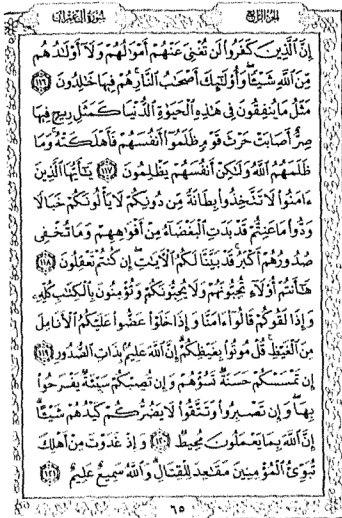 سُورَةُ آلِ عِمْرَانَ الجزء الرابع
إِنَّ الَّذِينَ كَفَرُوا لَن تُغْنِيَ عَنْهُمْ أَمْوَالُهُمْ وَلَا أَوْلَادُهُم
مِّنَ اللَّهِ شَيْئًا وَأُولَٰئِكَ أَصْحَابُ النَّارِ هُمْ فِيهَا خَالِدُونَ ١١٦
مَثَلُ مَا يُنفِقُونَ فِي هَٰذِهِ الْحَيَوٰةِ الدُّنْيَا كَمَثَلِ رِيحٍ فِيهَا
صِرٌّ أَصَابَتْ حَرْثَ قَوْمٍ ظَلَمُوا أَنفُسَهُمْ فَأَهْلَكَتْهُ وَمَا
ظَلَمَهُمُ اللَّهُ وَلَٰكِنْ أَنفُسَهُمْ يَظْلِمُونَ ١١٧ يَا أَيُّهَا الَّذِينَ
ءَامَنُوا لَا تَتَّخِذُوا بِطَانَةً مِّن دُونِكُمْ لَا يَأْلُونَكُمْ خَبَالًا
وَدُّوا مَا عَنِتُّمْ قَدْ بَدَتِ الْبَغْضَاءُ مِنْ أَفْوَاهِهِمْ وَمَا تُخْفِي
صُدُورُهُمْ أَكْبَرُ قَدْ بَيَّنَّا لَكُمُ الْآيَاتِ إِن كُنتُمْ تَعْقِلُونَ ١١٨
هَا أَنتُمْ أُولَاءِ تُحِبُّونَهُمْ وَلَا يُحِبُّونَكُمْ وَتُؤْمِنُونَ بِالْكِتَابِ كُلِّهِ
وَإِذَا لَقُوكُمْ قَالُوا ءَامَنَّا وَإِذَا خَلَوْا عَضُّوا عَلَيْكُمُ الْأَنَامِلَ
مِنَ الْغَيْظِ قُلْ مُوتُوا بِغَيْظِكُمْ إِنَّ اللَّهَ عَلِيمٌ بِذَاتِ الصُّدُورِ ١١٩
إِن تَمْسَسْكُمْ حَسَنَةٌ تَسُؤْهُمْ وَإِن تُصِبْكُمْ سَيِّئَةٌ يَفْرَحُوا
بِهَا وَإِن تَصْبِرُوا وَتَتَّقُوا لَا يَضُرُّكُمْ كَيْدُهُمْ شَيْئًا
إِنَّ اللَّهَ بِمَا يَعْمَلُونَ مُحِيطٌ ١٢٠ وَإِذْ غَدَوْتَ مِنْ أَهْلِكَ
تُبَوِّئُ الْمُؤْمِنِينَ مَقَاعِدَ لِلْقِتَالِ وَاللَّهُ سَمِيعٌ عَلِيمٌ ١٢١
٦٥